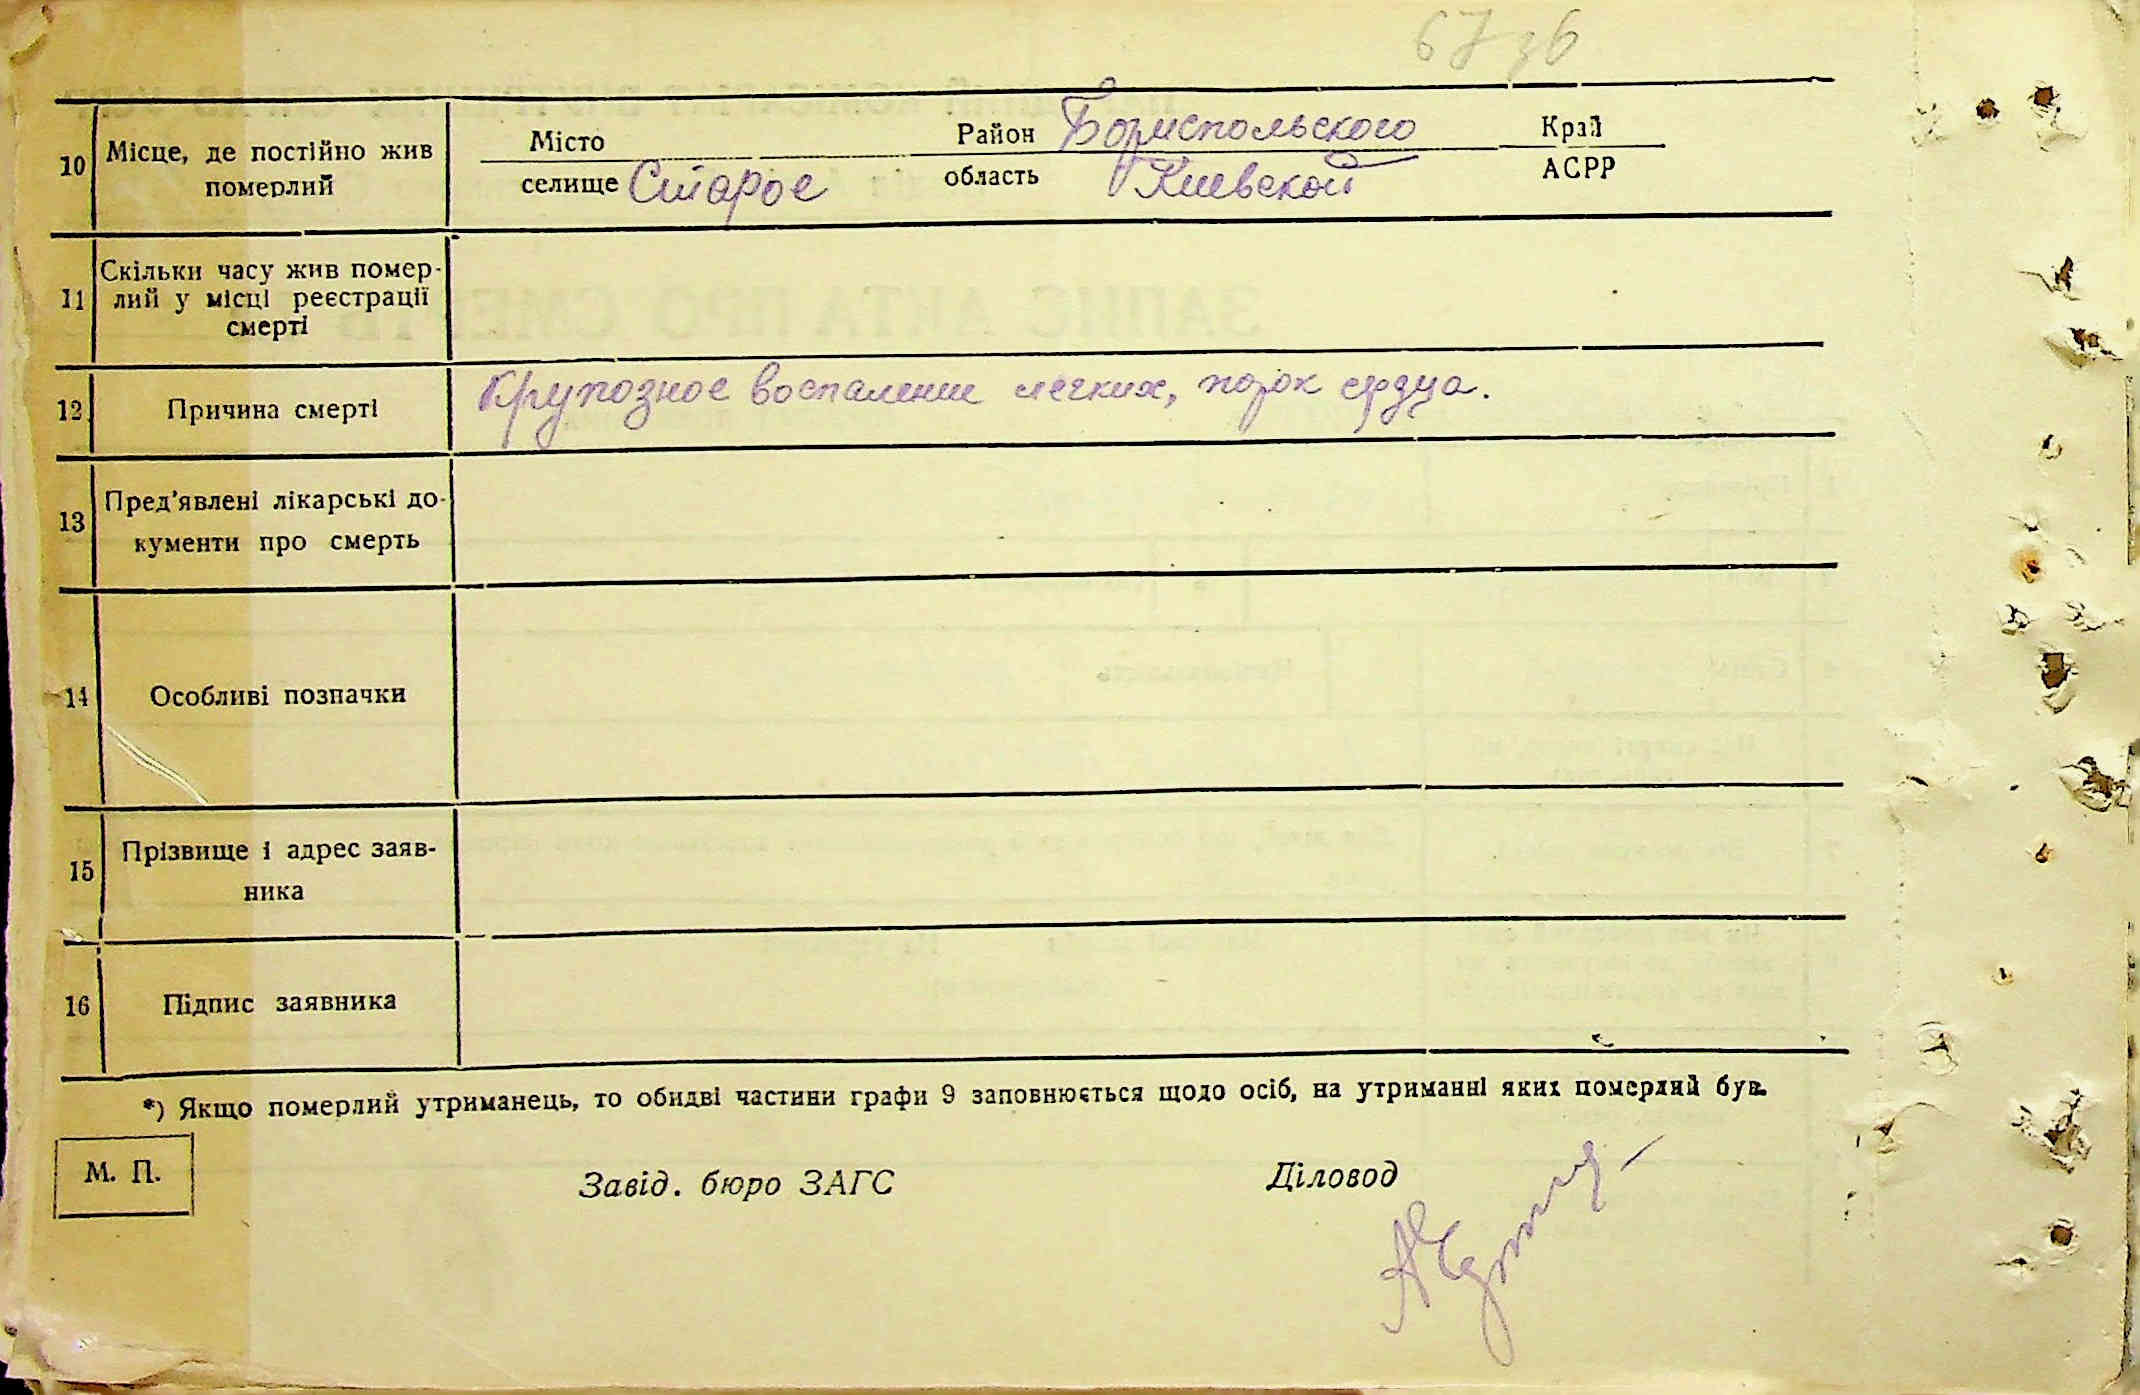 67 зв
10 Місце, де постійно жив померлий
Місто Район Бориспольского Край
селище Старое область Киевской АСРР
11 Скільки часу жив помер-
лий у місці реєстрації
смерті
12 Причина смерті Крупозное воспаление легких, порок сердца.
13 Пред'явлені лікарські до-
кументи про смерть
14 Особливі позначки
15 Прізвище і адрес заяв-
ника
16 Підпис заявника
*) Якщо померлий утриманець, то обидві частини графи 9 заповнюється щодо осіб, на утриманні яких померлий був.
М. П. Завід. бюро ЗАГС Діловод